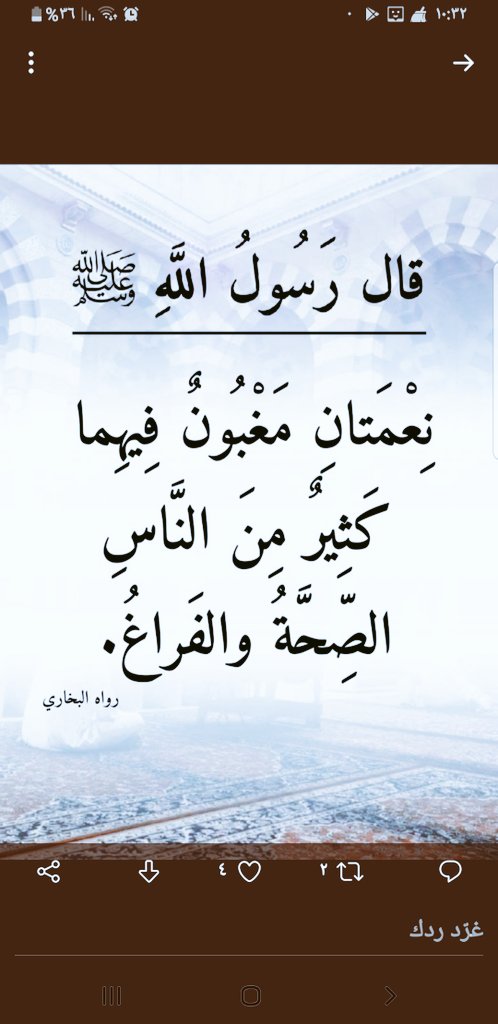 ١٠:٣٢ ٣٦%
قال رَسُولُ اللَّهِ ﷺ
نِعْمَتانِ مَغْبُونٌ فِيهِما
كَثِيرٌ مِنَ النَّاسِ
الصِّحَّةُ والفَراغُ.
رواه البخاري
٢ ٤
غرّد ردك